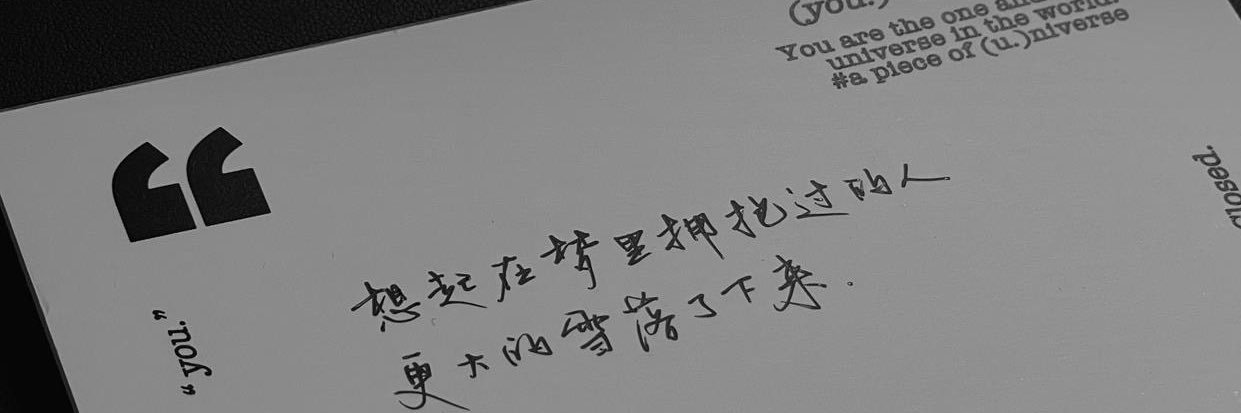 (you.)
You are the one and
universe in the world.
#a piece of (u.)niverse
“
想起在情里拥抱过的人
更大的雪落了下来.
“you.”
closed.